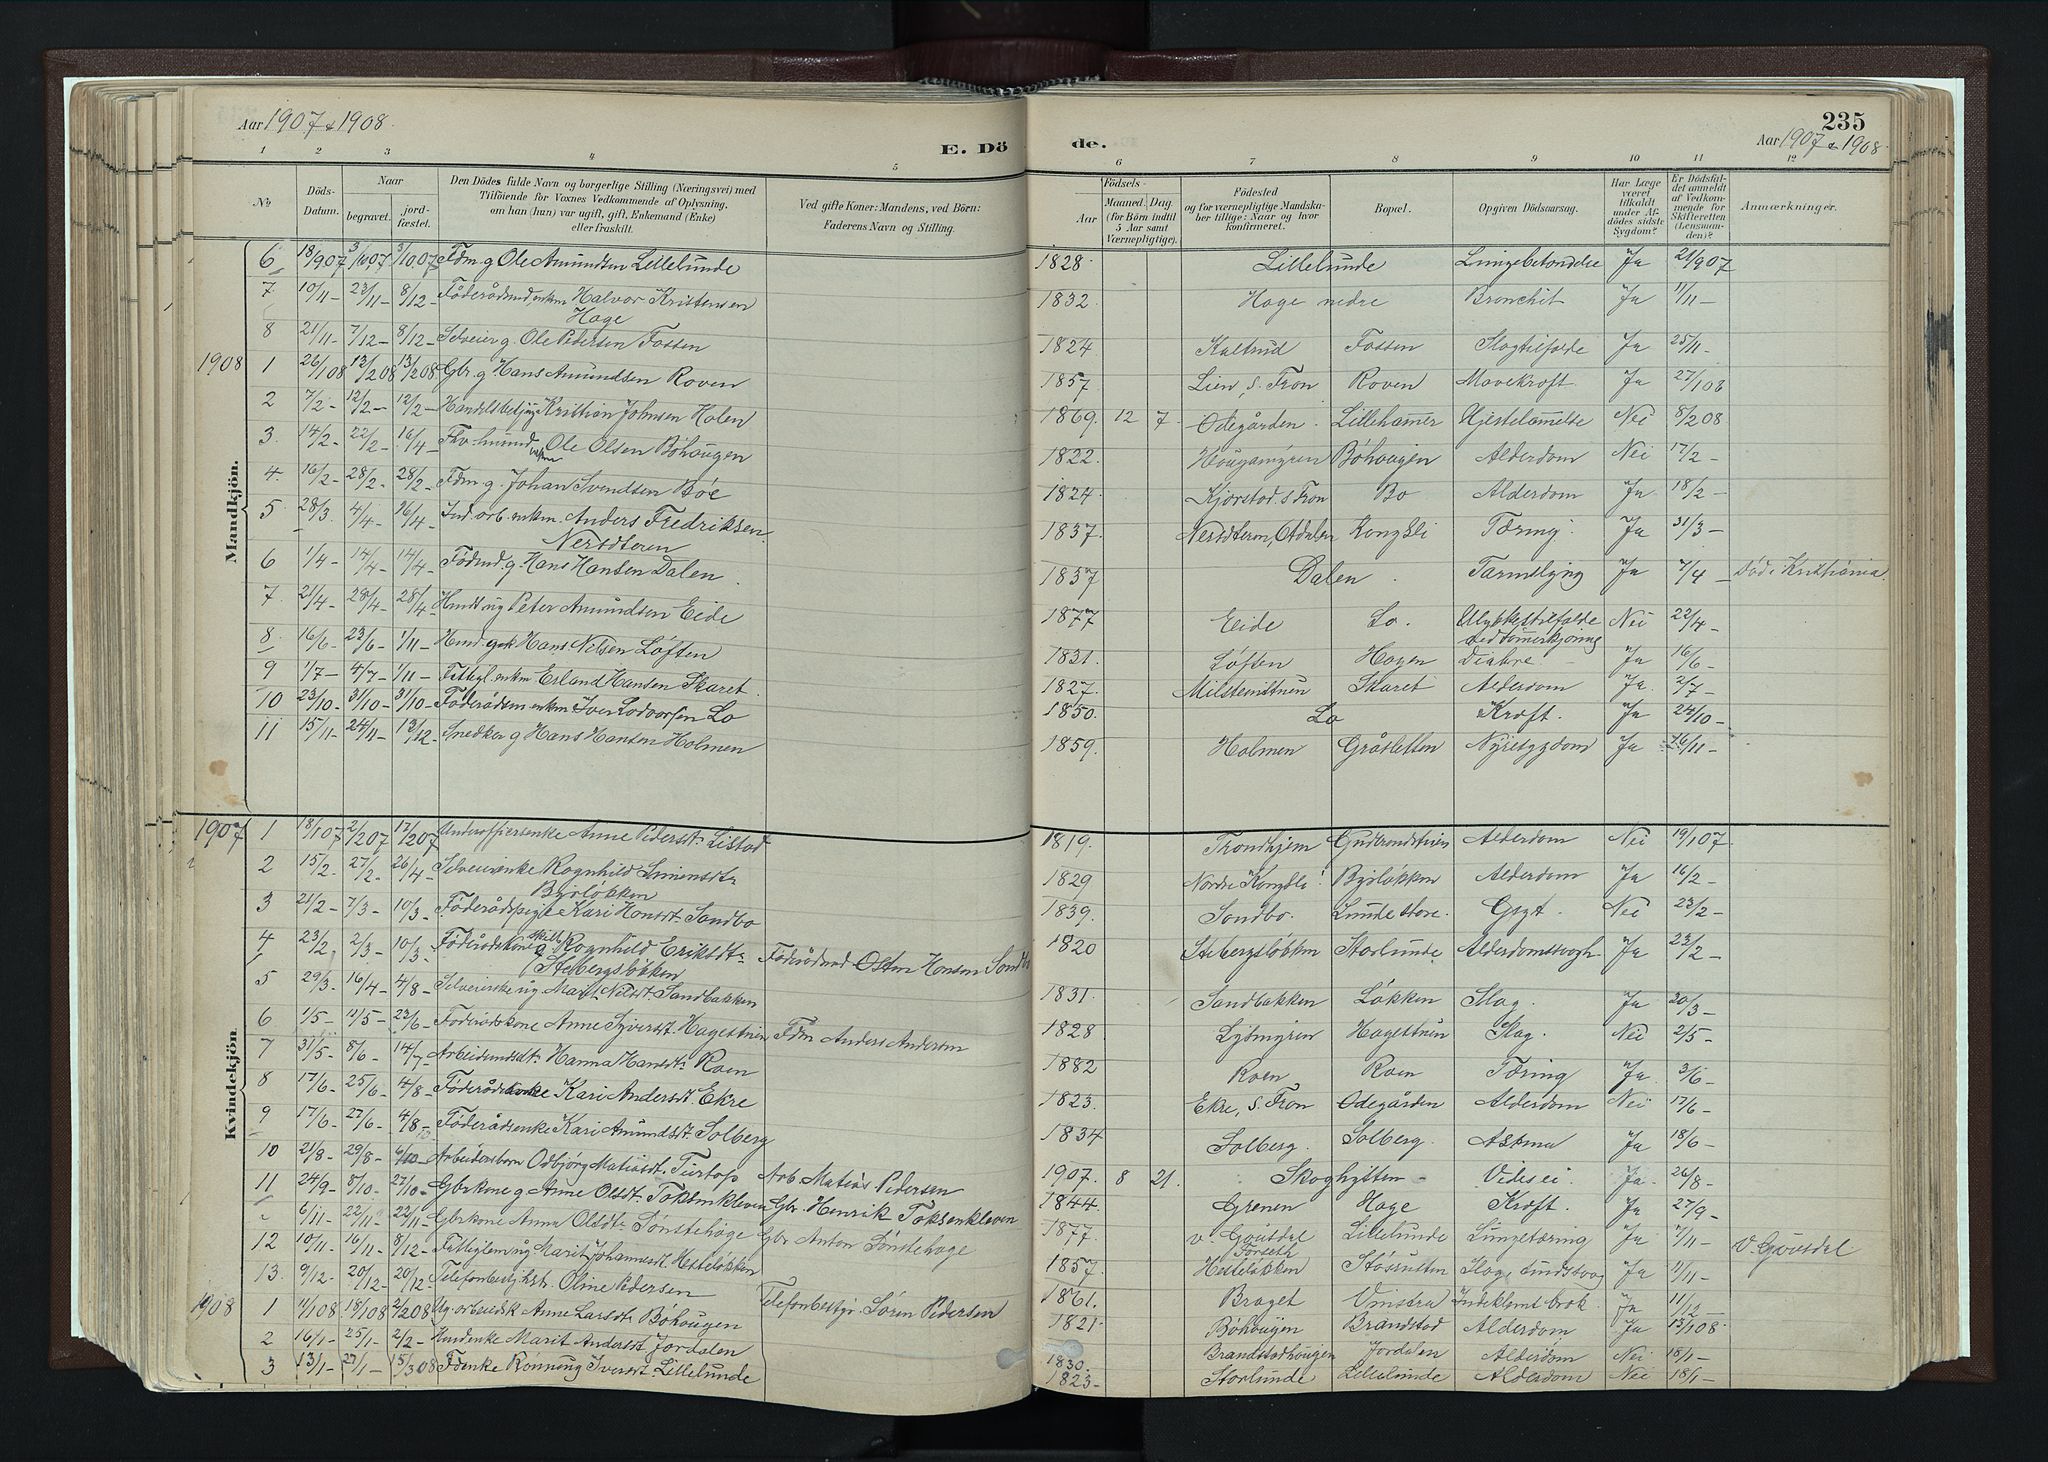 Aar 1907 & 1908.
E. Dö
de.
235
Aar 1907 & 1908.
1 2 3 4 5 6 7 8 9 10 11 12
No
Döds-Datum.
Naar
begravet.
jord-fæstet.
Den Dödes fulde Navn og borgerlige Stilling (Næringsvei) med
Tilföiende for Voxnes Vedkommende af Oplysning,
om han (hun) var ugift, gift, Enkemand (Enke)
eller fraskilt.
Ved gifte Koner: Mandens, ved Börn:
Faderens Navn og Stilling.
Födsels-
Aar
Maaned. Dag.
(for Börn indtil
5 Aar samt
Værnepligtige).
Födested
og for værnepligtige Mandska-
ber tillige: Naar og hvor
konfirmeret.
Bopæl.
Opgiven Dödsaarsag.
Har Læge
været
tilkaldt
under Af-
dödes sidste
Sygdom?
Er Dödsfal-
det anmeldt
af Vedkom-
mende for
Skifteretten
(Lensman-
den)?
Anmærkninger.
Mandkjön.
6 18/907 3/1007 3/1007 Fdm. g. Ole Amundsen Lillelunde 1828. Lillelunde Lungebetændelse Ja 21/907
7 10/11- 23/11- 8/12- Føderådsmd, enkm Halvor Kristensen 1832. Hage nedre Bronchit Ja 11/11-
Hage
8 21/11- 7/12- 8/12- Selveier g. Ole Pedersen Fossen 1824. Kaltrud Fossen Slagtilfælde Ja 25/11-
1908 1 26/108 13/208 13/208 Gbr. g Hans Amundsen Roven 1857. Lien, s. Fron Roven Mavekræft. Ja 27/108
2 7/2- 12/2- 12/2- Handelsbetj ug Kristian Johnsen Holen 1869. 12 7. Ødegården. Lillehamer Hjertelamelse Nei 8/208
3. 14/2- 22/2- 16/4- Ole Olsen Böhaugen 1822. Böhaugen Alderdom Nei 17/2-
4. 16/2- 28/2- 28/2- Fdm. g. Johan Svendsen Bøe 1824. Kjørstad s Fron Bø Alderdom Ja 18/2-
5 28/3. 4/4- 26/4- Ind. arb. enkm. Anders Fredriksen 1837. Kongsli Tæring. Ja 31/3-
6 1/4- 14/4- 14/4- Fødmd. g. Hans Hansen Dalen. 1837 Dalen. Tarmslyng Ja 7/4- Död i Kristiania.
7. 21/4- 28/4- 28/4- Husst ug Peter Amundsen Eide 1877 Eide Lo. Ulykkestilfælde Nei 22/4-
ved tømerkjøring
8. 16/6- 23/6- 1/11- Hans Nilsen Løften 1831. Løften Hagen Diahre. Ja 16/6-
9 1/7- 4/7- 1/11- enkm. Erland Hansen Skaret. 1827. Skaret Alderdom Ja. 2/7-
10 23/10- 31/10- 31/10- Føderådsm enkm Iver Lodvorsen Lo 1850. Lo Kræft. Ja 24/10-
11 15/11- 24/11- 13/12- Snedker g Hans Hansen Holmen 1859. Holmen Gråsletten Nyresygdom Ja 16/11-
Kvindekjön.
1907 1 18/107 2/207 17/207 Underofficersenke Anne Pedersdt. Listad 1819. Trondhjem Alderdom Nei 19/107
2 15/2- 27/2- 26/4- Selveierenke Ragnhild Simensdtr 1829 Nordre Kongsli. Byrløkken Alderdom Ja 16/2-
Byrløkken
3 21/2- 7/3- 10/3- Føderådspige Kari Hansdt. Sandbo 1839. Sandbo. Lunde store. Gigt. Nei 23/2-
4 23/2. 2/3- 10/3- Føderådskone Skilt Ragnhild Eriksdtr Føderådsmd Østen Hansen Sandbo 1820 Stebergsløkken Storlunde Ja 23/2-
Stebergsløkken
5 29/3- 16/4- 4/8- ug. Marit Nilsdt. Sandbakken 1831. Sandbakken Løkken Slag. Ja 20/3-
6 1/5- 11/5- 23/6- Føderådskone Anne Syversdt. Hagestuen Fdm Anders Andersen 1828. Lysmyren Hagestuen Slag. Nei 2/5-
7 31/5- 8/6- 14/7- Arbeidersdt. Hanna Hansdt. Roen 1882 Roen Roen Tæring Ja. 3/6-
8 17/6- 25/6- 4/8- Føderådsenke Kari Andersdt. Ekre 1823. Ekre, s. Fron Ødegården Alderdom Nei 17/6-
9 17/6- 27/6- 4/8- Føderådsenke Kari Amundsdt. Solberg 1834 Solberg. Solberg. Astma Ja 18/6-
10 21/8- 29/8- 6/10- Arbeidersbarn Odbjørg Matiasdt. Turtop Arb. Matias Pedersen 1907. 8 21. Skoghytten Ja. 26/8-
11 24/9- 8/10- 27/10- Gbrkone g Anne Olsdt. Toksenkleven Gbr. Henrik Toksenkleven 1844. Grenen Hage Kræft. Ja 27/9-
6/11- 22/11- 22/11- Gbrkone Anna Olsdtr Sønstehage Gbr Anton Sønstehage 1877. v. Gausdal Lillelunde Lungetæring Ja 7/11- v. Gausdal
Forseth
12 10/11- 16/11- 8/12- Fattiglem ug. Marit Johannesdt. Hesteløkken 1857. Hesteløkken Slag Ja 11/11-
13. 9/12- 20/12- 20/12- Oline Pedersen Telefonbestyr. Søren Pedersen 1861. Braget Vinstra Indeklemt brok. Ja 11/12-
1908 1 11/108 18/108 2/208 Anne Larsdt. Böhaugen 1821. Böhaugen Brandstad Alderdom Ja 13/108-
2 16/1- 25/1- 2/2- Husenke Marit Andersdt. Jordalen 1830. Brandstadhaugen Jordalen Alderdom Nei 18/1-
3 13/1- 27/1- 15/308 Fdenke Rønnug Iversdt. Lillelunde 1823- Storlunde Lillelunde Alderdom Nei 18/1-